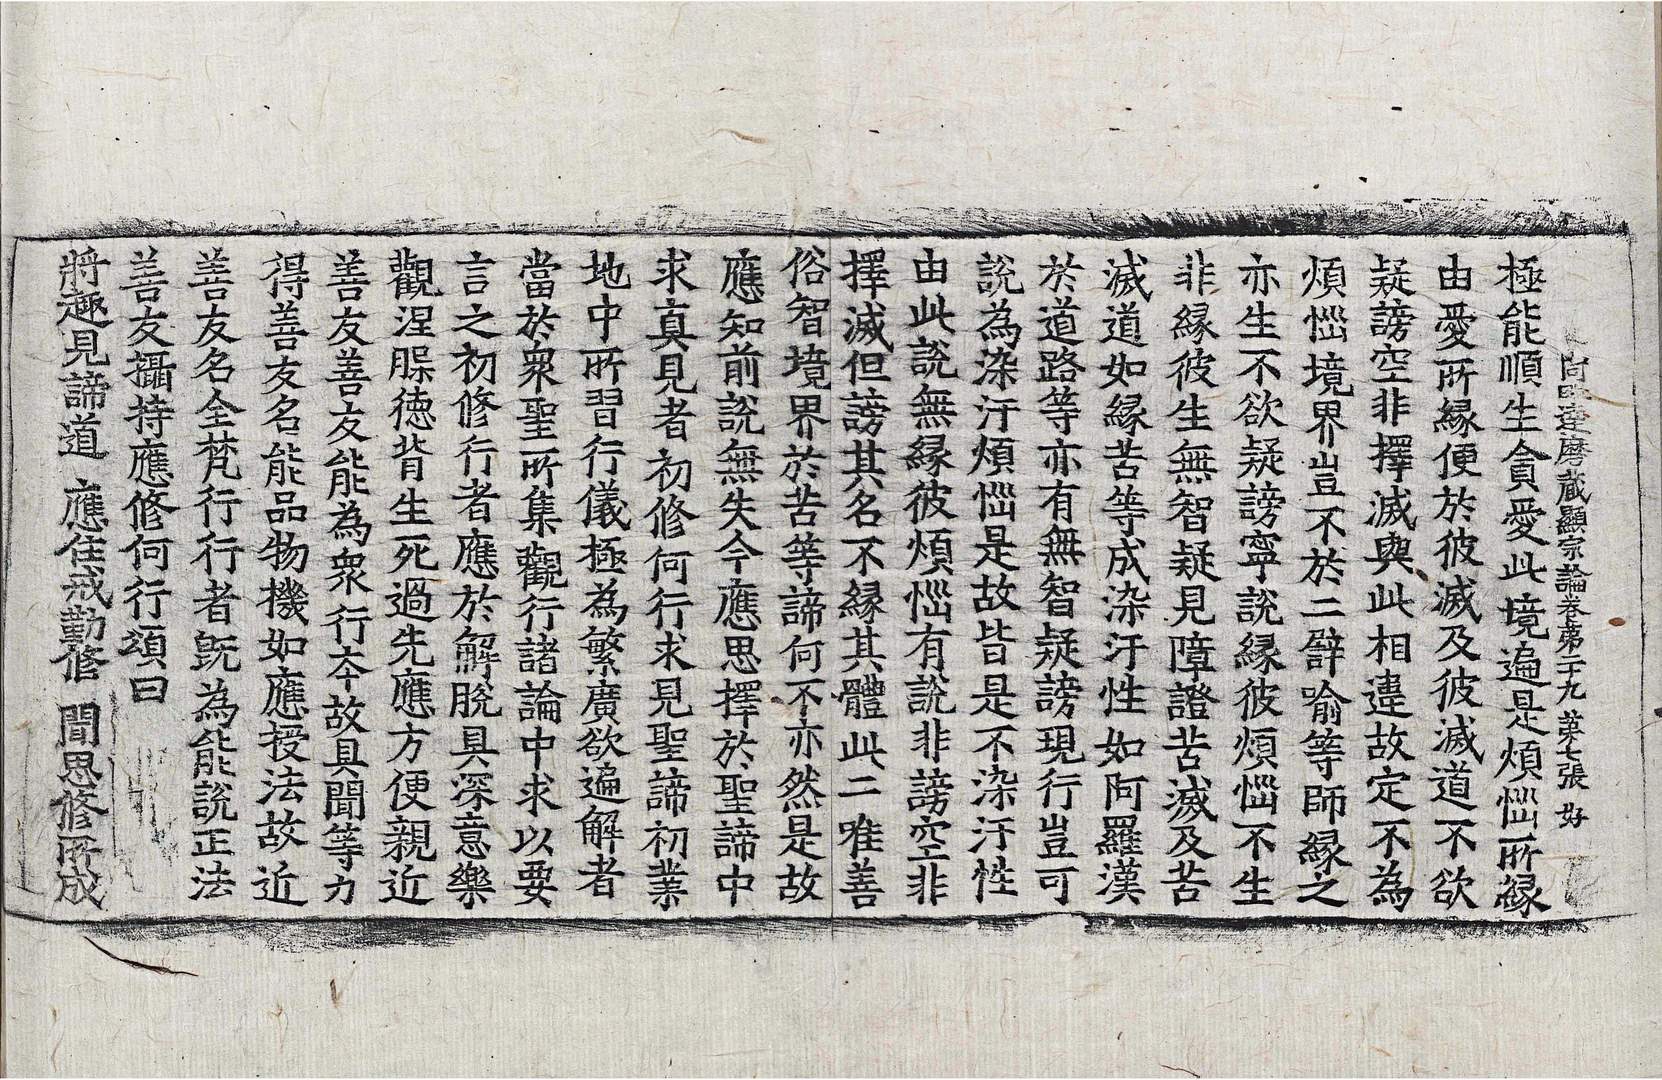 達磨藏顯宗論卷第二十九 第七張 好
極能順生貪愛此境遍是煩惱所縁
由愛所縁便於彼滅及彼滅道不欲
疑謗空非擇滅與此相違故定不為
煩惱境界豈不於二譬喻等師縁之
亦生不欲疑謗寧說縁彼煩惱不生
非縁彼生無智疑見障證苦滅及苦
滅道如縁苦等成染汙性如阿羅漢
於道路等亦有無智疑謗現行豈可
說為染汙煩惱是故皆是不染汙性
由此說無縁彼煩惱有說非謗空非
擇滅但謗其名不縁其體此二唯善
俗智境界於苦等諦何不亦然是故
應知前說無失今應思擇於聖諦中
求真見者初修何行求見聖諦初業
地中所習行儀極為繁廣欲遍解者
當於衆聖所集觀行諸論中求以要
言之初修行者應於解脫具深意樂
觀涅槃徳背生死過先應方便親近
善友善友能為衆行夲故具聞等力
得善友名能品物機如應授法故近
善友名全梵行行者旣為能說正法
善友攝持應修何行頌曰
將趣見諦道 應住戒勤修 聞思修所成